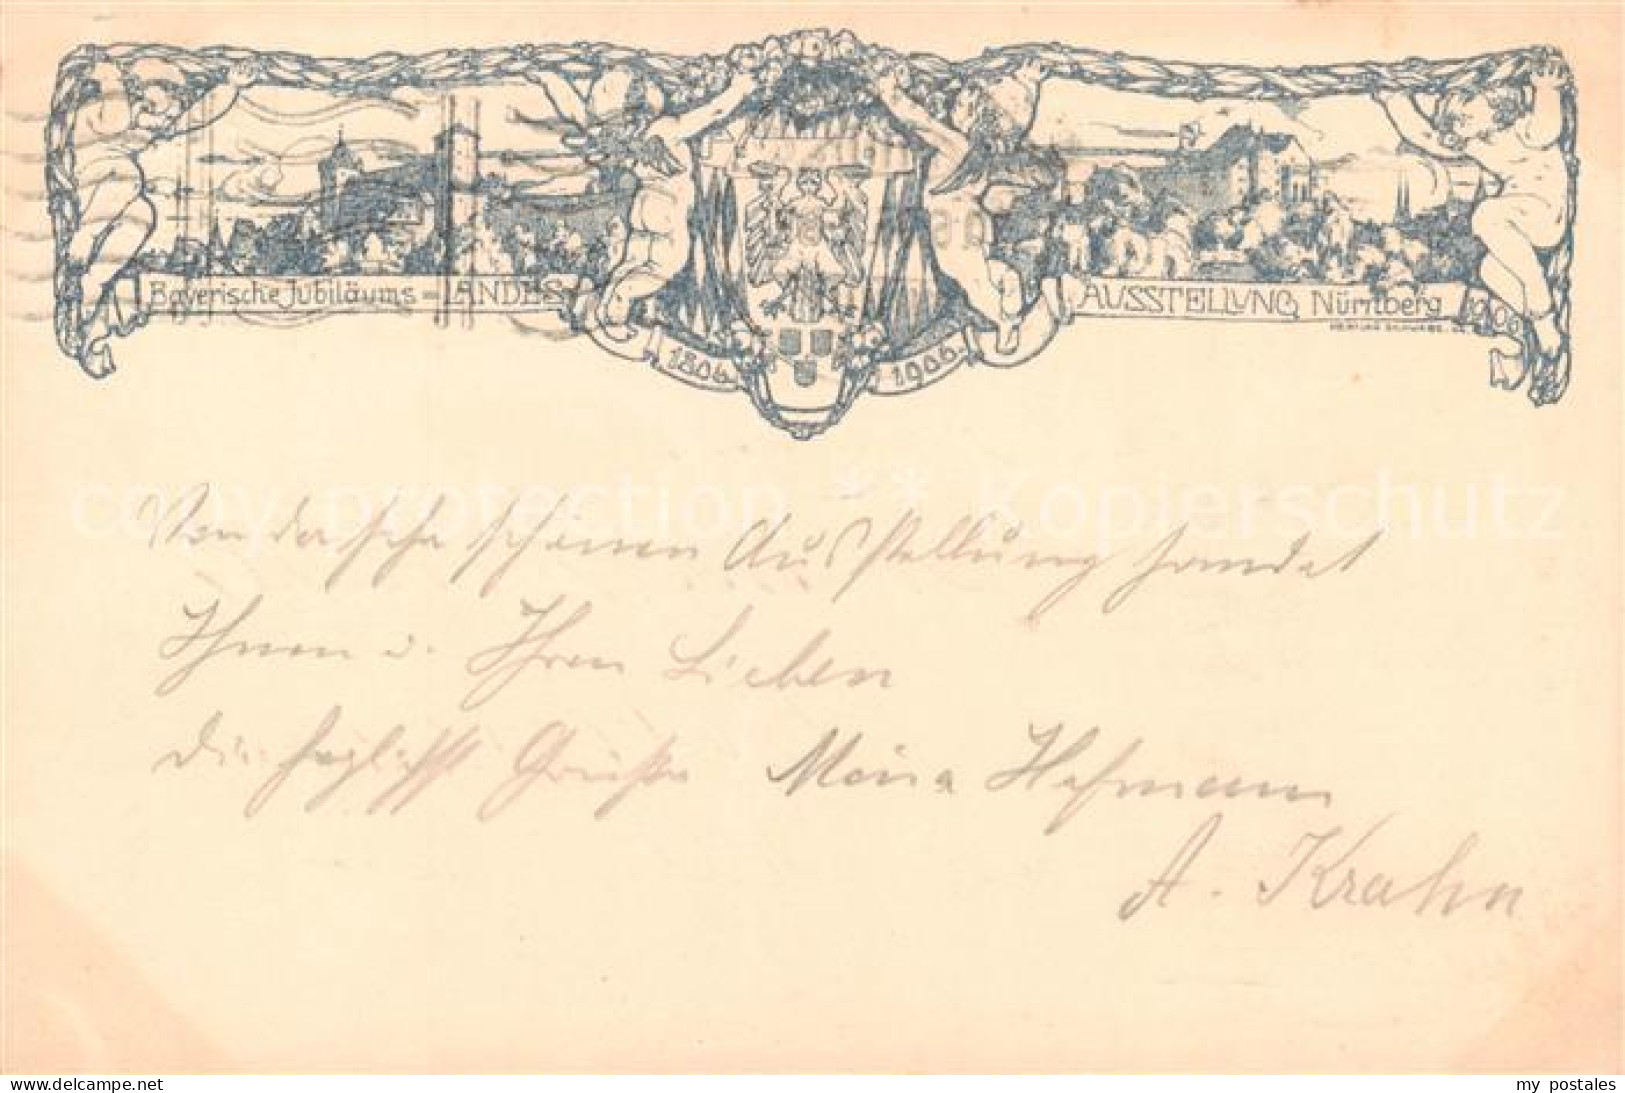 Bayerische Jubiläums-LANDES
AUSSTELLUNG Nürnberg 1906
1806 1906.
copy protection ** Kopierschutz
Von der sehr schönen Ausstellung sendet
Ihnen u. Ihren Lieben
die herzlichst Grüße Maria Hofmann
A. Krahn
www.ansichtskartenversand.com
my postales